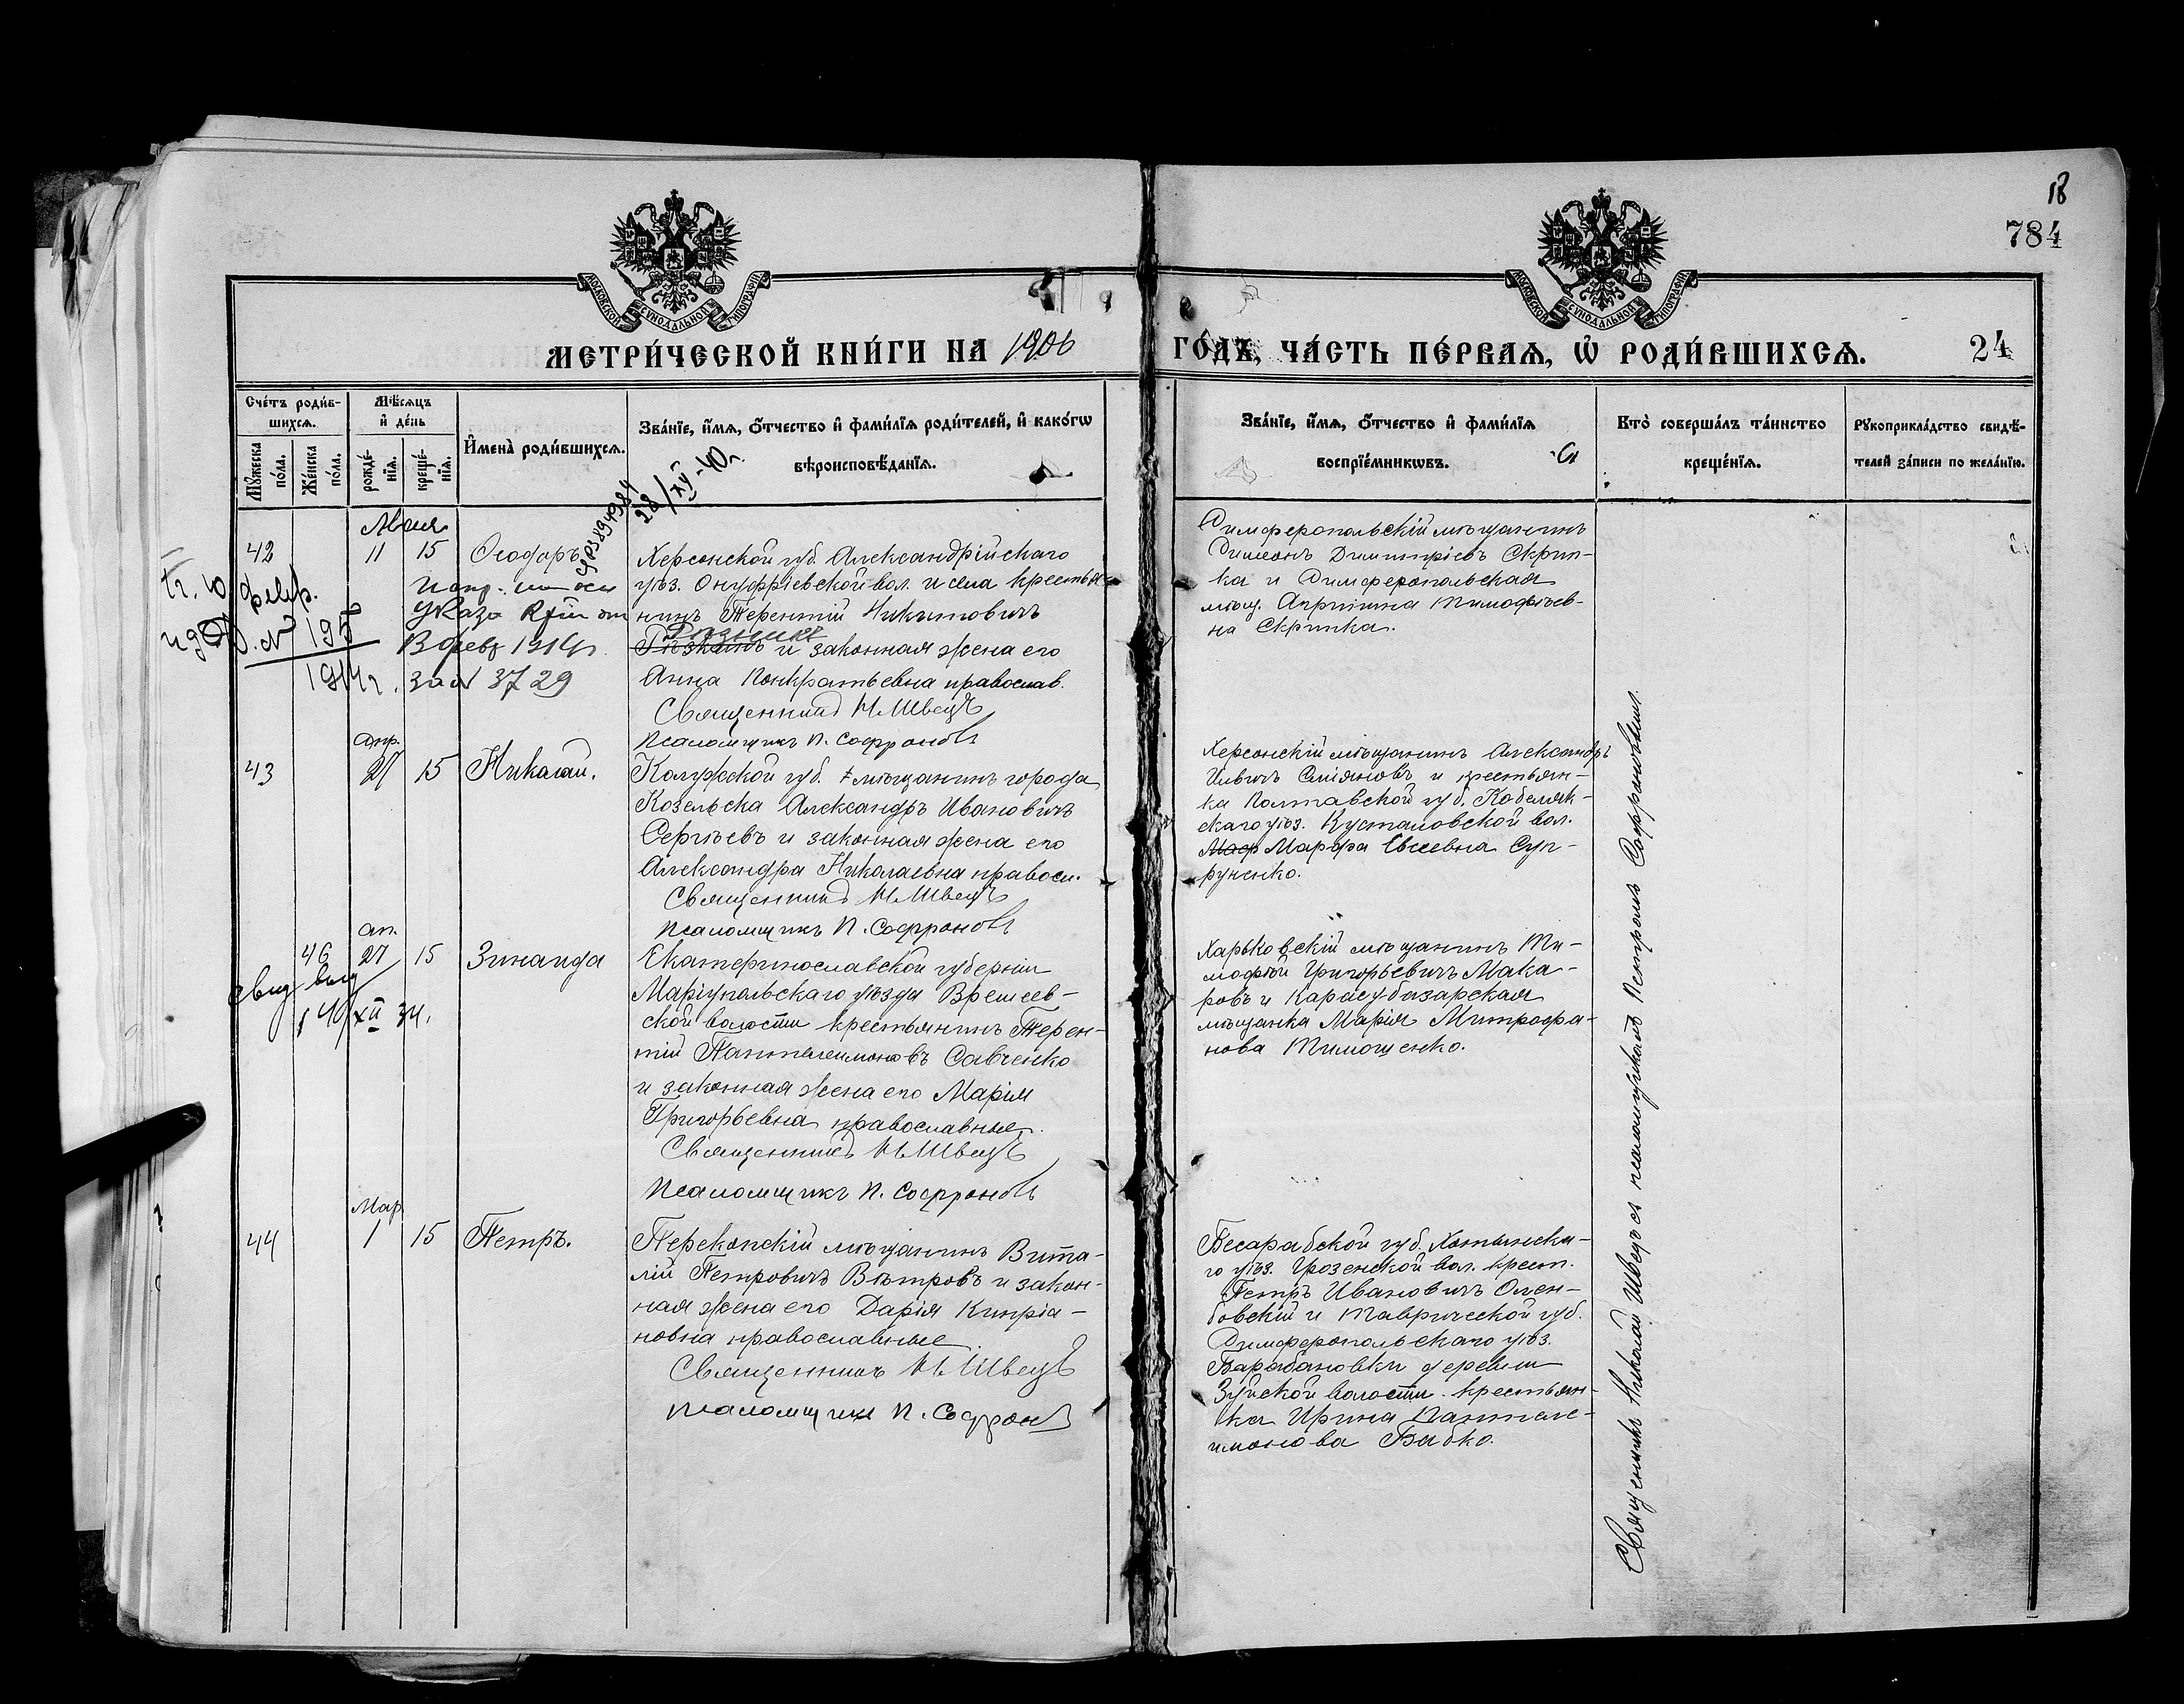 18
784
МОСКОВСКОЙ СѴНОДАЛЬНОЙ ТИПОГРАФІИ
МОСКОВСКОЙ СѴНОДАЛЬНОЙ ТИПОГРАФІИ
МЕТРИ́ЧЕСКОЙ КНИ́ГИ НА 1906
ГО́ДЪ, ЧА́СТЬ ПЕ́РВАЯ, Ѡ҆ РОДИ́ВШИХСЯ.
24
Сче́тъ роди́в-
шихся.
Мꙋ́жеска по́ла.
Же́нска по́ла.
Мѣ́сяцъ
и҆ де́нь
рожде́-
нїя.
креще́-
нїя.
И҆мена̀ роди́вшихся.
Зва́нїе, и҆́мя, ѻ҆́тчество и҆ фами́лїя роди́телей, и҆ како́гѡ
вѣроисповѣ́данїя.
28/XII-40г.
Зва́нїе, и҆́мя, ѻ҆́тчество и҆ фами́лїя
воспрїе́мникѡвъ.
Кто̀ соверша́лъ та́инство
креще́нїя.
Рꙋкоприкла́дство свидѣ́-
телей за́писи по жела́нїю.
Мая
42
11
15
Ѳеодоръ
Херсонской губ. Александрійскаго
уѣз. Онуфріевской вол. и села крестья-
нинъ Терентій Никитовичъ
и законная жена его
Анна Понкратьевна православ.
Священникъ Н. Швецъ
Псаломщикъ П. Софроновъ
февр.
№ 195
1914г.
Указа
В февр 1914г.
за № 3729
Симферопольскій мѣщанинъ
Симеонъ Димитріевъ Скрип-
ка и Симферопольская
мѣщ. Агрипина Тимофѣев-
на Скрипка.
Апр.
43
27
15
Николай.
Калужской губ. мѣщанинъ города
Козельска Александръ Ивановичъ
Сергѣевъ и законная жена его
Александра Николаевна правосл.
Священникъ Н. Швецъ
Псаломщикъ П. Софроновъ
Херсонскій мѣщанинъ Александръ
Ильичъ и крестьян-
ка Полтавской губ. Кобеляк-
скаго уѣз. Кустоловской вол.
Мар Марфа Евсеевна Суп-
руненко.
ап.
46
27
15
Зинаида
XII 34.
Екатеринославской губерніи
Маріупольскаго уѣзда Времев-
ской волости крестьянинъ Терен-
тій Пантелеимоновъ Савченко
и законная жена его Марія
Григорьевна православные.
Священникъ Н. Швецъ
Псаломщикъ П. Софроновъ
Харьковскій мѣщанинъ Ти-
мофей Григорьевичъ Мака-
ровъ и Карасубазарская
мѣщанка Марія Митрофа-
нова Тимошенко.
Мар.
44
1
15
Петръ.
Перекопскій мѣщанинъ Вита-
лій Петровичъ Вѣтровъ и закон-
ная жена его Дарія Кипріа-
новна православные.
Священникъ Н. Швецъ
Псаломщикъ П. Софроновъ
Бесарабской губ. Хотинска-
го уѣз. Грозенской вол. крест.
Петръ Ивановичъ Олен-
бовскій и Таврической губ.
Симферопольскаго уѣз.
Барабановки деревни
Зуйской волости крестьян-
ка Ирина Пантеле-
имонова Бабко.
Священникъ Николай Швецъ съ псаломщикомъ Петромъ Софроновымъ.